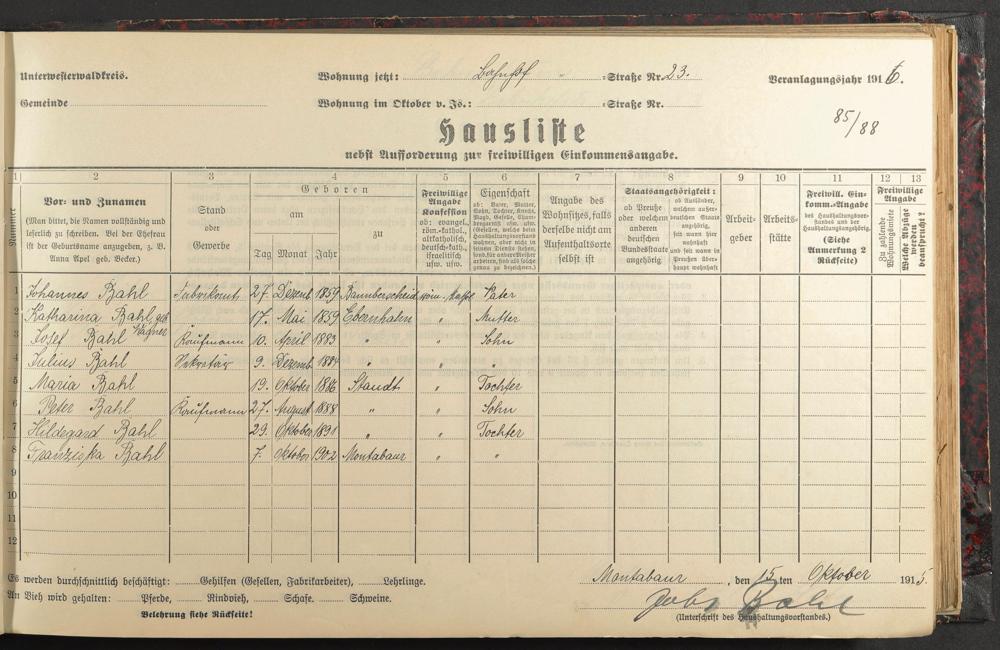 Unterwesterwaldkreis.
Wohnung jetzt: Bahnhof „ =Straße Nr. 23.
Veranlagungsjahr 1916.
Gemeinde
Wohnung im Oktober v. Js.: =Straße Nr.
85/88
Hausliste
nebst Aufforderung zur freiwilligen Einkommensangabe.
1 2 3 4 5 6 7 8 9 10 11 12 13
Nummer
Vor- und Zunamen
(Man bittet, die Namen vollständig und
leserlich zu schreiben. Bei der Ehefrau
ist der Geburtsname anzugeben, z. B.
Anna Apel geb. Becker.)
Stand
oder
Gewerbe
Geboren
am
zu
Tag Monat Jahr
Freiwillige
Angabe
Konfession
ob: evangel.,
röm.-kathol.,
altkatholisch,
deutsch-kath.,
israelitisch
usw. usw.
Eigenschaft
ob: Vater, Mutter,
Sohn, Tochter, Knecht,
Magd, Geselle,
Angabe des
Wohnsitzes, falls
derselbe nicht am
Aufenthaltsorte
selbst ist
Staatsangehörigkeit:
ob Preuße
oder welchem
anderen
deutschen
Bundesstaate
angehörig
ob Ausländer,
welchem außer-
deutschen Staate
angehörig,
seit wann hier
wohnhaft
und seit wann in
Preußen über-
haupt wohnhaft
Arbeit-
geber
Arbeits-
stätte
Freiwill. Ein-
komm.-Angabe
des Haushaltungsvor-
standes und der
Haushaltungsangehörig.
(Siehe
Anmerkung 2
Rückseite)
Freiwillige
Angabe
Zu zahlende
Wohnungsmiete
Welche Abzüge
werden
beansprucht?
1 Johannes Bahl Fabrikant 27. Dezemb. 1859 Bannberscheid röm.-kath. Vater
2 Katharina Bahl geb. Wagner 17. Mai 1859 Ebernhahn „ Mutter
3 Josef Bahl Kaufmann 10. April 1883 „ „ Sohn
4 Julius Bahl Sekretär 9. Dezemb. 1884 „ „ „
5 Maria Bahl 19. Oktober 1886 Staudt „ Tochter
6 Peter Bahl Kaufmann 27. August 1888 „ „ Sohn
7 Hildegard Bahl 29. Oktober 1891 „ „ Tochter
8 Franziska Bahl 7. Oktober 1902 Montabaur „ „
9
10
11
12
Es werden durchschnittlich beschäftigt: Gehilfen (Gesellen, Fabrikarbeiter), Lehrlinge.
Montabaur, den 15ten Oktober 1915
An Vieh wird gehalten: Pferde, Rindvieh, Schafe. Schweine.
Joh. Bahl
Belehrung siehe Rückseite!
(Unterschrift des Haushaltungsvorstandes.)